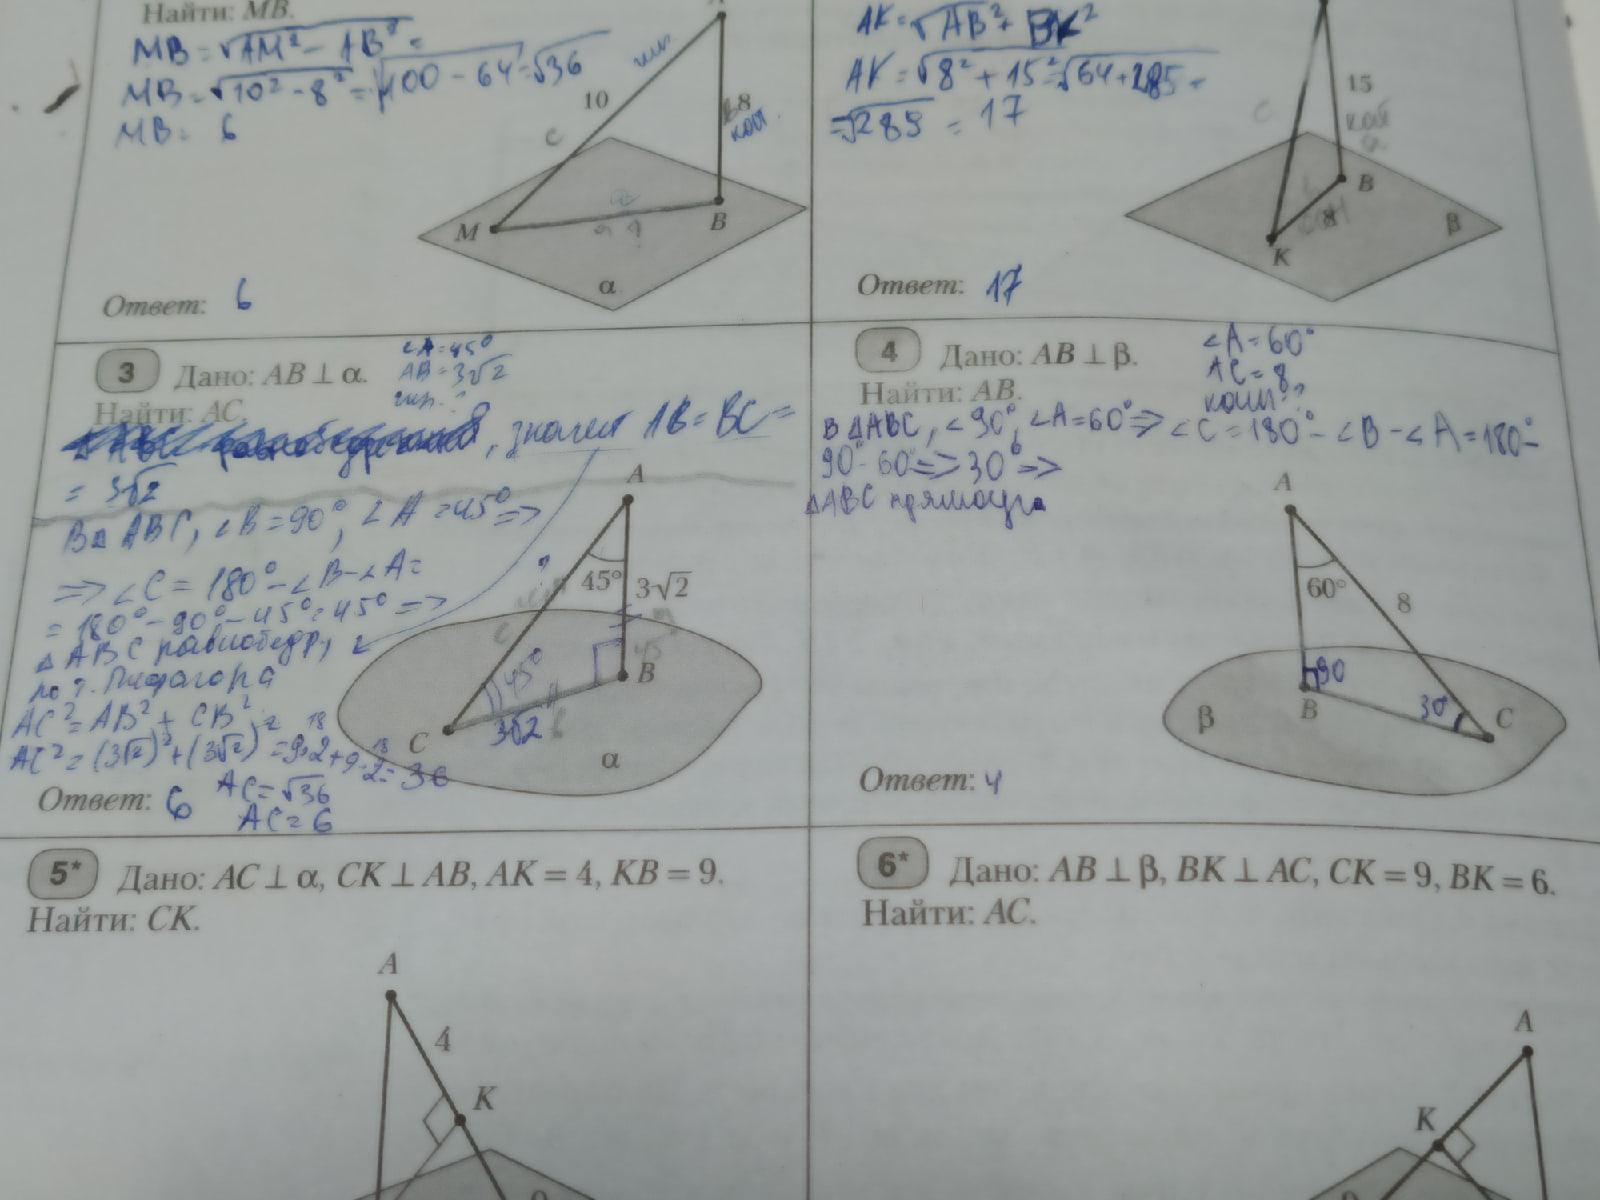 Найти: MB.
MB = √AM² - AB² =
MB = √10² - 8² = √100 - 64 = √36
MB = 6
10
8
M
B
α
Ответ: 6
AK = √AB² + BK²
AK = √8² + 15² = √64 + 285 =
= √289 = 17
15
кат
B
8
K
β
Ответ: 17
3 Дано: AB ⊥ α.
∠A = 45°
AB = 3√2
гип. ?
Найти: AC.
, значит AB = BC =
= 3√2
В △ ABC, ∠B = 90°, ∠A = 45° =>
=> ∠C = 180° - ∠B - ∠A =
= 180° - 90° - 45° = 45° =>
△ ABC равнобедр,
по т. Пифагора
AC² = AB² + CB² =
AC² = (3√2)² + (3√2)² = 9·2 + 9·2 = 36
18
18
AC = √36
AC = 6
Ответ: 6
A
45°
3√2
B
45°
3√2
C
α
4 Дано: AB ⊥ β.
∠A = 60°
AC = 8
Найти: AB.
В △ABC, ∠90°, ∠A = 60° => ∠C = 180° - ∠B - ∠A = 180° -
90° - 60° => 30° =>
△ABC прямоуга
A
60°
8
90
B
30°
C
β
Ответ: 4
5* Дано: AC ⊥ α, CK ⊥ AB, AK = 4, KB = 9.
Найти: CK.
A
4
K
9
6* Дано: AB ⊥ β, BK ⊥ AC, CK = 9, BK = 6.
Найти: AC.
A
K
9